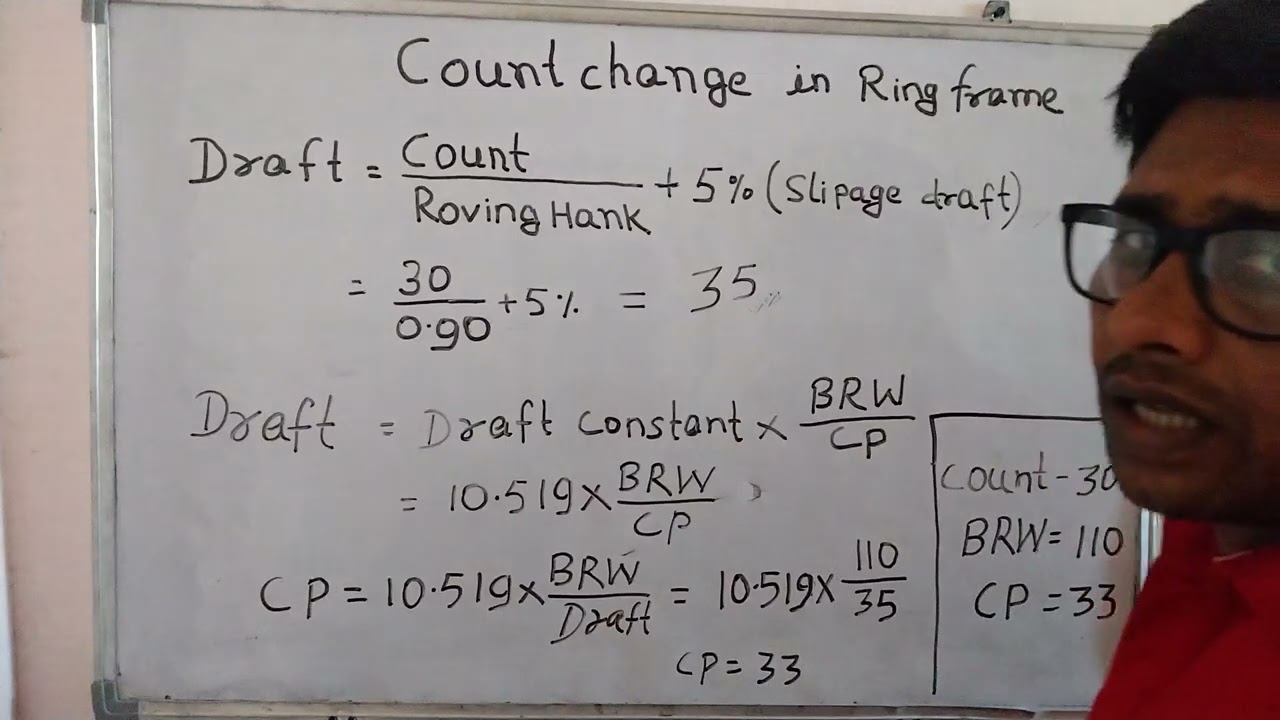 Count change in Ring frame
Draft = Count / Roving Hank + 5% (Slipage draft)
= 30 / 0.90 + 5% = 35
Draft = Draft constant × BRW / CP
= 10.519 × BRW / CP
CP = 10.519 × BRW / Draft = 10.519 × 110 / 35
CP = 33
Count - 30
BRW = 110
CP = 33